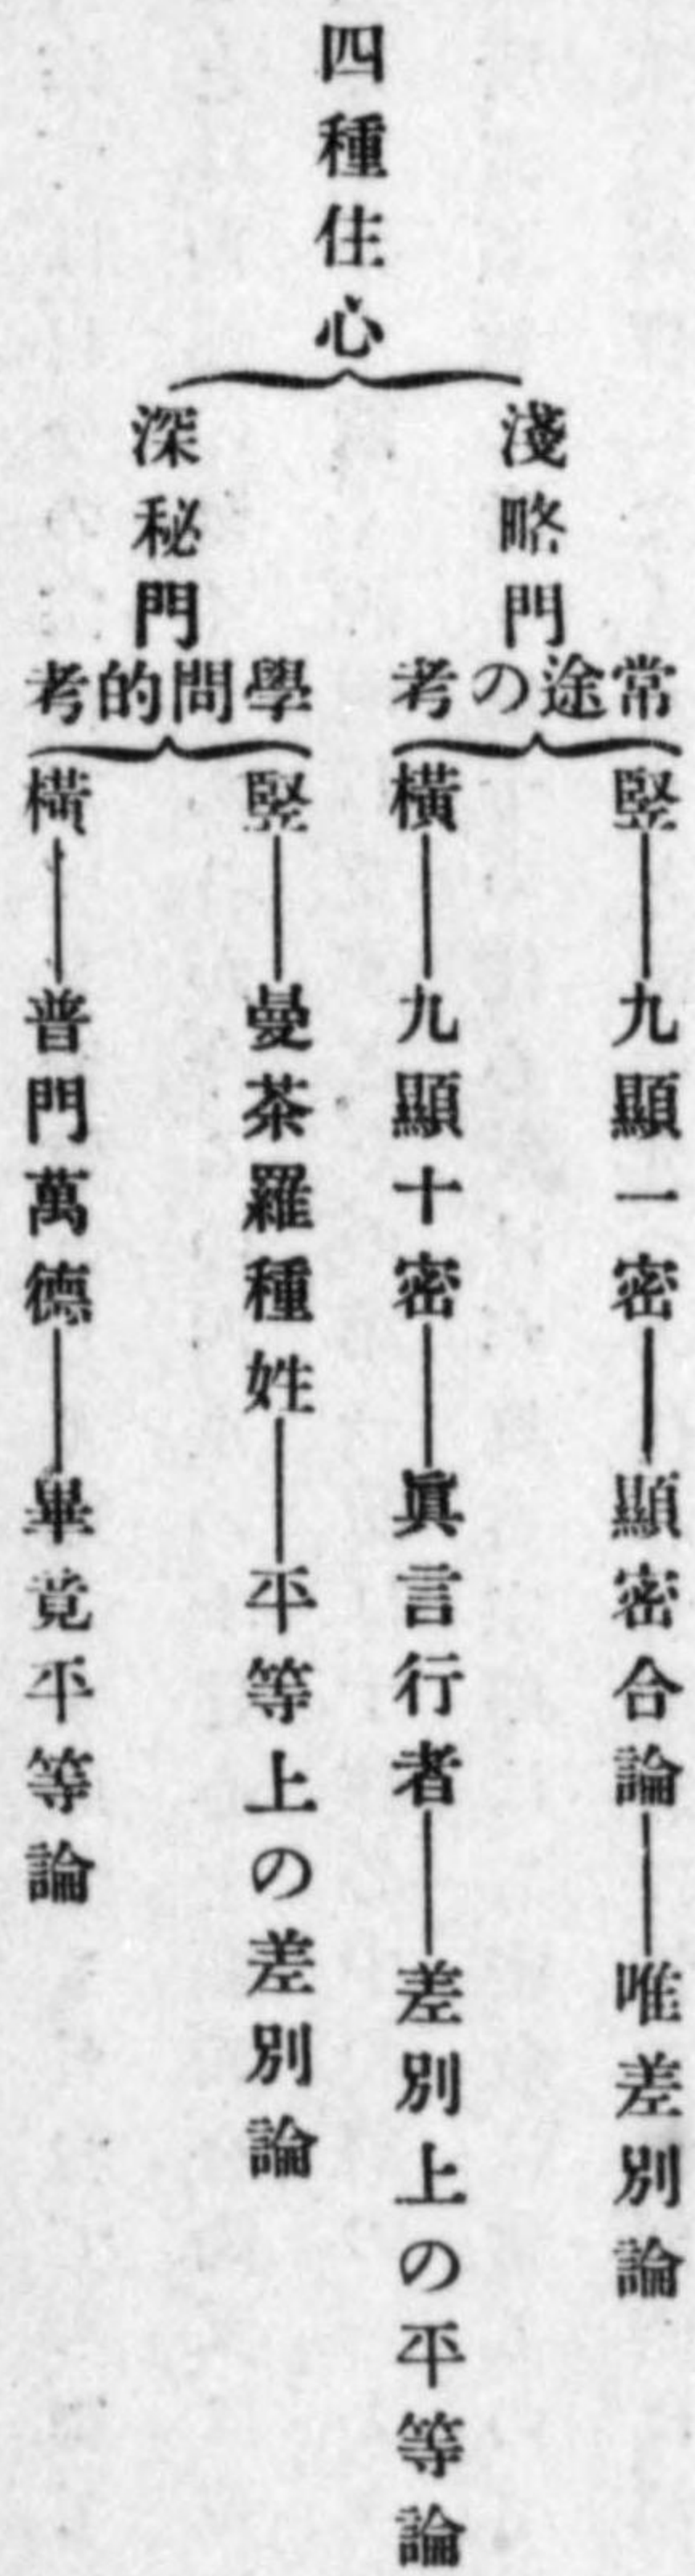 四種住心
淺略門
常途の考
竪——九顯一密——顯密合論——唯差別論
横——九顯十密——眞言行者——差別上の平等論
深秘門
學問的考
竪——曼茶羅種姓——平等上の差別論
横——普門萬德——畢竟平等論